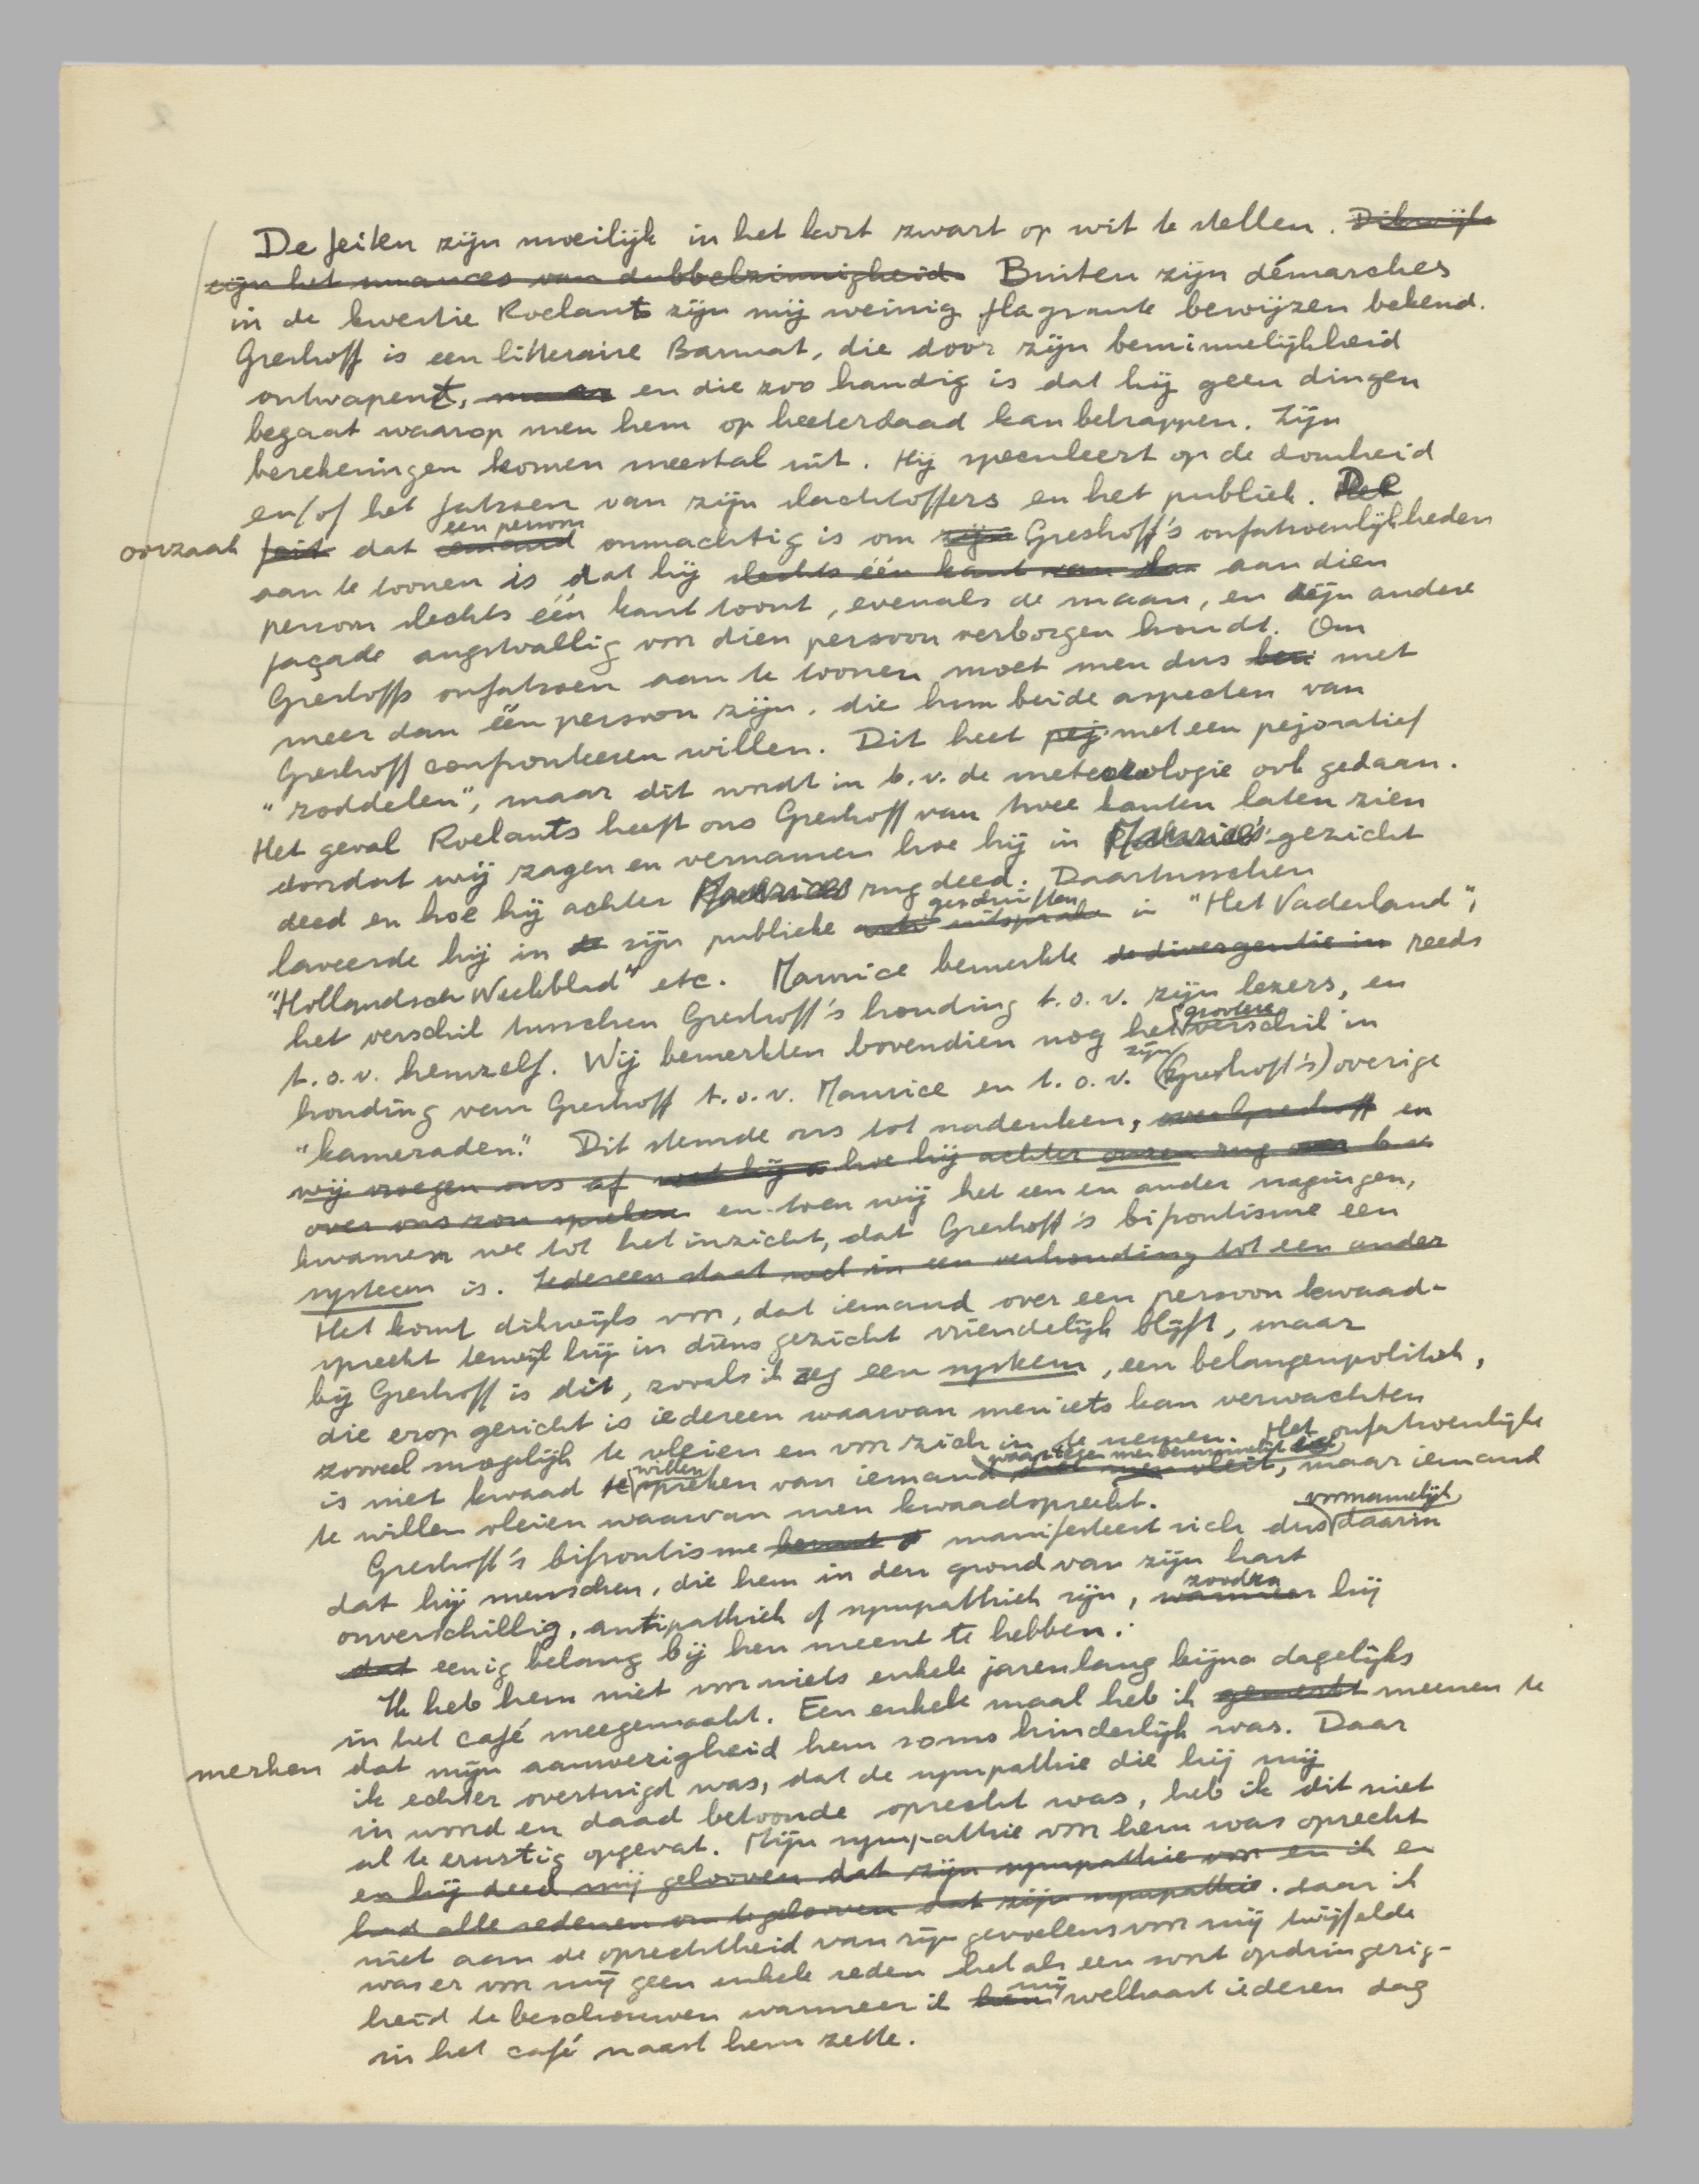 De feiten zijn moeilijk in het kort zwart op wit te stellen. Dikwijls
zijn het nuances van dubbelzinnigheid. Buiten zijn démarches
in de kwestie Roelants zijn mij weinig flagrante bewijzen bekend.
Greshoff is een litteraire Barmat, die door zijn beminnelijkheid
ontwapent, maar en die zoo handig is dat hij geen dingen
begaat waarop men hem op heeterdaad kan betrappen. Zijn
berekeningen komen meestal uit. Hij speculeert op de domheid
en/of het fatsoen van zijn slachtoffers en het publiek. De
een persoon
oorzaak feit dat iemand onmachtig is om zijn Greshoff's onfatsoenlijkheden
aan te toonen is dat hij slechts één kant van slaa aan dien
persoon slechts één kant toont, evenals de maan, en zijn andere
façade angstvallig voor dien persoon verborgen houdt. Om
Greshoffs onfatsoen aan te toonen moet men dus met
meer dan één persoon zijn, die hun beide aspecten van
Greshoff confronteeren willen. Dit heet pej met een pejoratief
"roddelen", maar dit wordt in b.v. de meteorologie ook gedaan.
Het geval Roelants heeft ons Greshoff van twee kanten laten zien
doordat wij zagen en vernamen hoe hij in Maurice's gezicht
deed en hoe hij achter Maurices rug deed. Daartusschen
geschriften
laveerde hij in de zijn publieke uitsprake in "Het Vaderland",
"Hollandsch Weekblad" etc. Maurice bemerkte de divergentie in reeds
het verschil tusschen Greshoff's houding t.o.v. zijn lezers, en
grootere
t.o.v. hemzelf. Wij bemerkten bovendien nog het verschil in
zijn
houding van Greshoff t.o.v. Maurice en t.o.v. (Greshoff's) overige
"kameraden." Dit stemde ons tot nadenken, over Greshoff en
wij vroegen ons af wat hij hoe hij achter onzen rug over b.v.
over ons zou spreken en toen wij het een en ander nagingen,
kwamen we tot het inzicht, dat Greshoff's bifrontisme een
systeem is. Iedereen staat wel in een verhouding tot een ander
Het komt dikwijls voor, dat iemand over een persoon kwaad-
spreekt terwijl hij in diens gezicht vriendelijk blijft, maar
bij Greshoff is dit, zooals ik zeg een systeem, een belangenpolitiek,
die erop gericht is iedereen waarvan men iets kan verwachten
zooveel mogelijk te vleien en voor zich in te nemen. Het onfatsoenlijke
willen waartegen men beminnelijk doet
is niet kwaad te spreken van iemand dien men vleit, maar iemand
te willen vleien waarvan men kwaadspreekt.
voornamelijk
Greshoff's bifrontisme manifesteert zich dus daarin
dat hij menschen, die hem in den grond van zijn hart
zoodra
onverschillig, antipathiek of sympathiek zijn, wanneer hij
dat eenig belang bij hen meent te hebben.
Ik heb hem niet voor niets enkele jarenlang bijna dagelijks
in het café meegemaakt. Een enkele maal heb ik gemerkt meenen te
merken dat mijn aanwezigheid hem soms hinderlijk was. Daar
ik echter overtuigd was, dat de sympathie die hij mij
in woord en daad betoonde oprecht was, heb ik dit niet
al te ernstig opgevat. Mijn sympathie voor hem was oprecht
en hij deed mij gelooven dat zijn sympathie voor en ik en
had alle redenen om te gelooven dat zijn sympathie. daar ik
niet aan de oprechtheid van zijn gevoelens voor mij twijfelde
was er voor mij geen enkele reden het als een soort opdringerig-
mij
heid te beschouwen wanneer ik hem welhaast iederen dag
in het café naast hem zette.